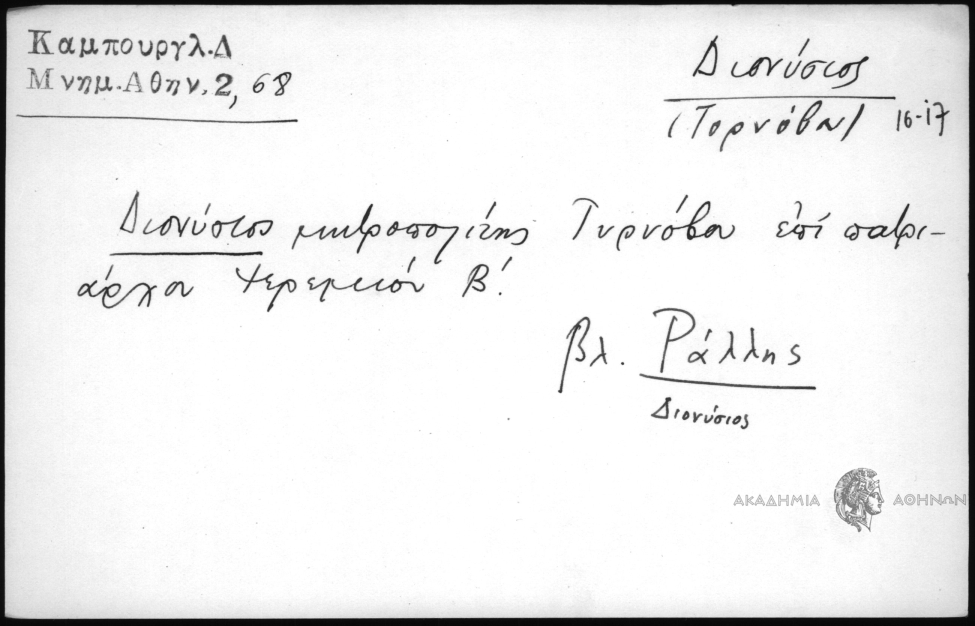 Καμπουργλ.Δ
Μνημ.Αθην.2, 68
Διονύσιος
(Τορνόβου) 16-17
Διονύσιος μητροπολίτης Τυρνόβου ἐπί πατρι-
άρχου Ἱερεμείου Β΄.
βλ. Ράλλης
Διονύσιος
ΑΚΑΔΗΜΙΑ ΑΘΗΝΩΝ